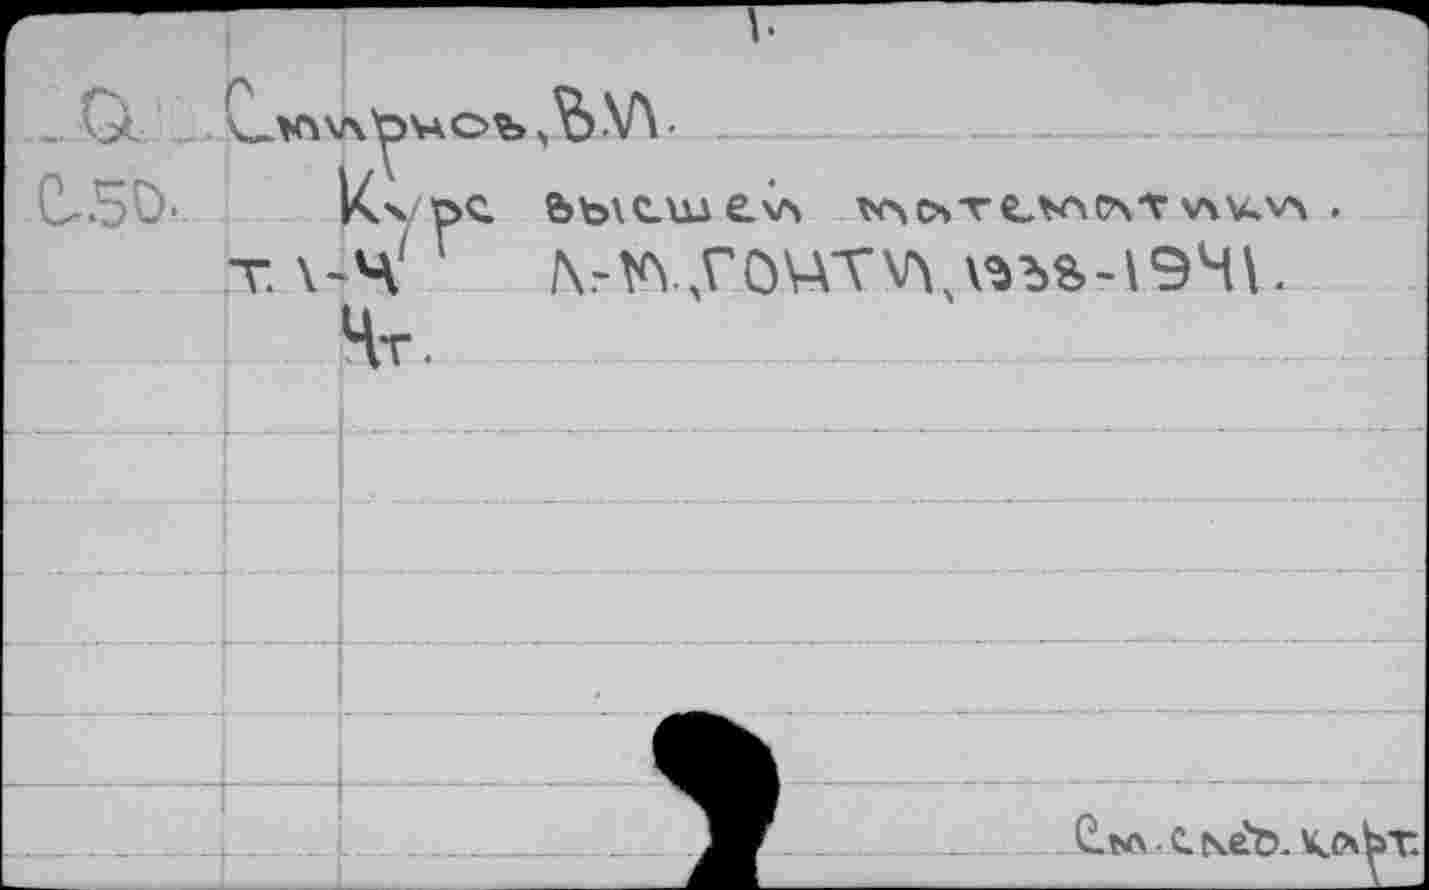 1.
Q Смирнов, В.И.
С.50. Курс высшей математики.
т. 1-4 Л.-М., ГОНТИ, 1938-1941.
Чт.
См. след. карт.